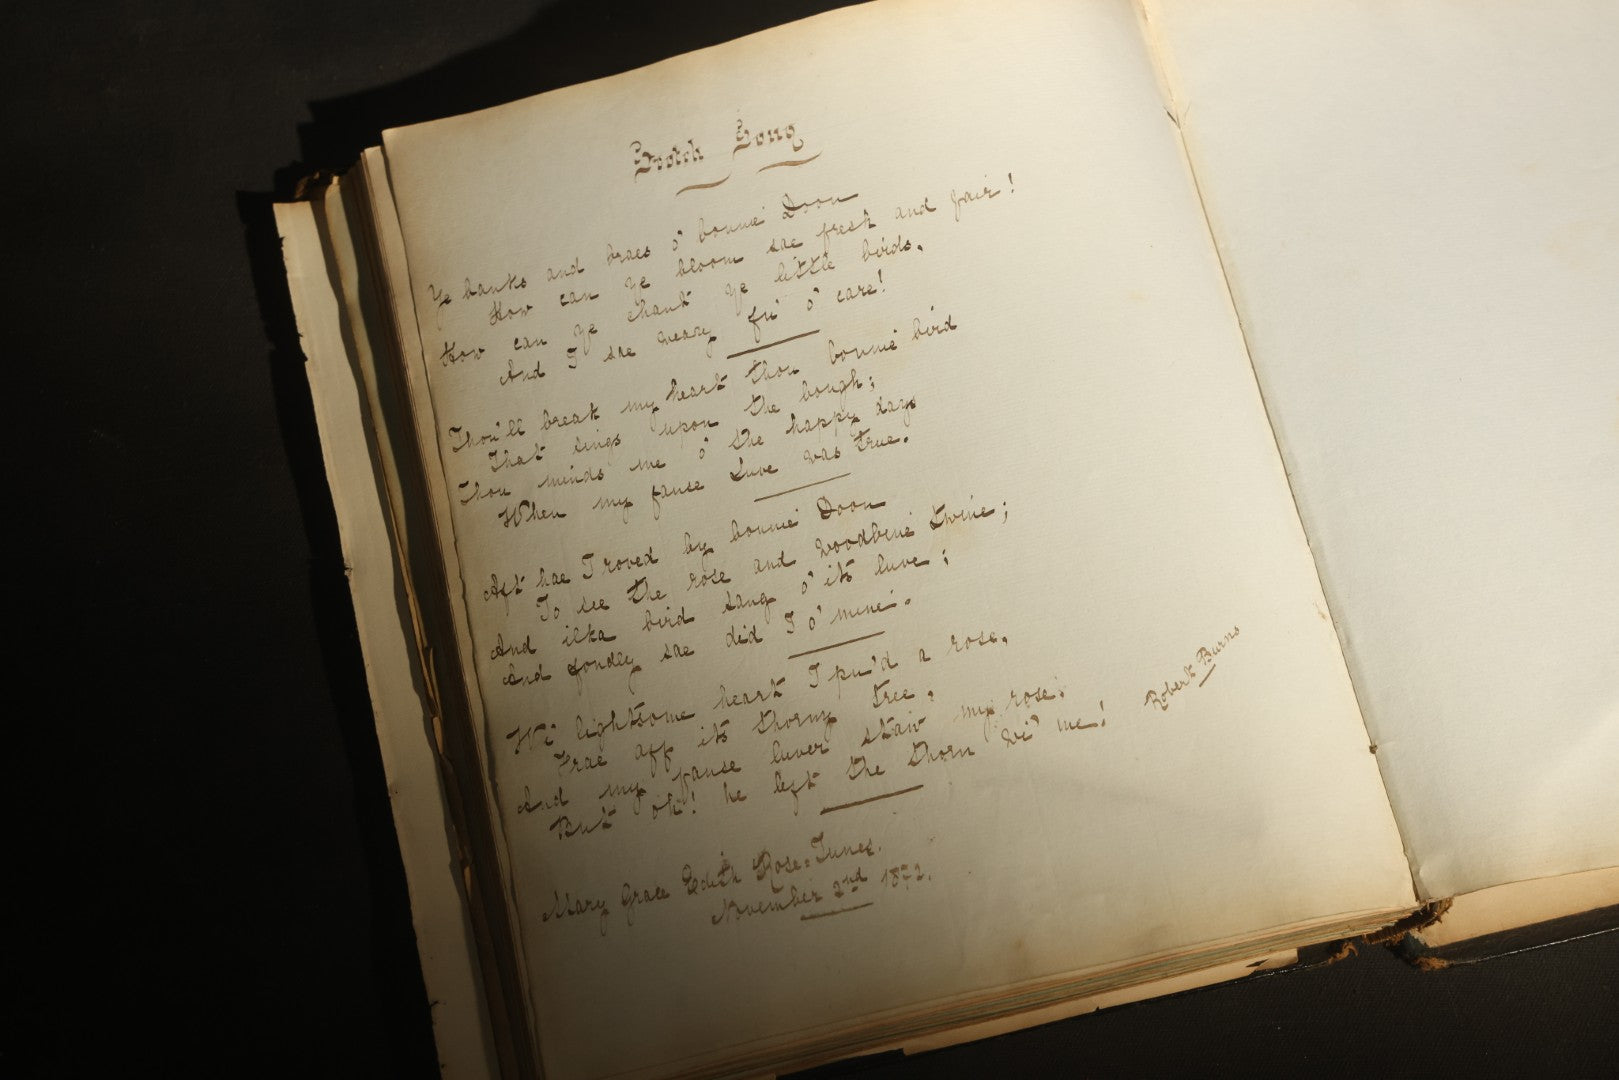 Scotch Song
Ye banks and braes o' bonnie Doon
How can ye bloom sae fresh and fair!
How can ye chant ye little birds,
And I sae weary fu' o' care!
Thou'll break my heart thou bonnie bird
That sings upon the bough;
Thou minds me o' the happy days
When my fause Luve was true.
Aft hae I roved by bonnie Doon
To see the rose and woodbine twine;
And ilka bird sang o' its luve;
And fondly sae did I o' mine.
Wi' lightsome heart I pu'd a rose,
Frae aff its thorny tree,
And my fause luver staw my rose.
But oh! he left the thorn wi' me!
Robert Burns
Mary Grace Edith Rose-Innes.
November 2nd 1872.